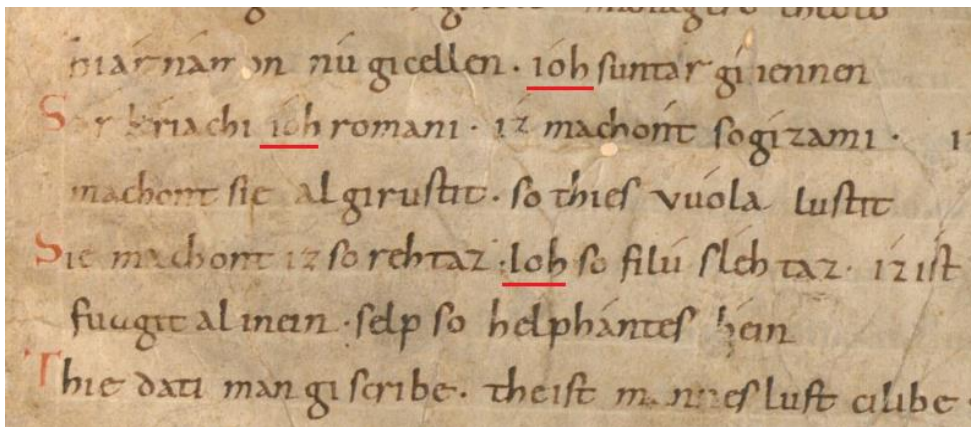 hiar nam on nú gicellen · ioh suntar ginennen
Sar kriachi ioh romani · iz machont sogizami · i
machont sie al girustit · so thies vuola lustit
Sie machont iz so rehtaz · Ioh so filú slehtaz · iz ist
fuagit al inein · selp so helphántes bein
Thie dati man giscribe · theist mannes lust cilibe ·